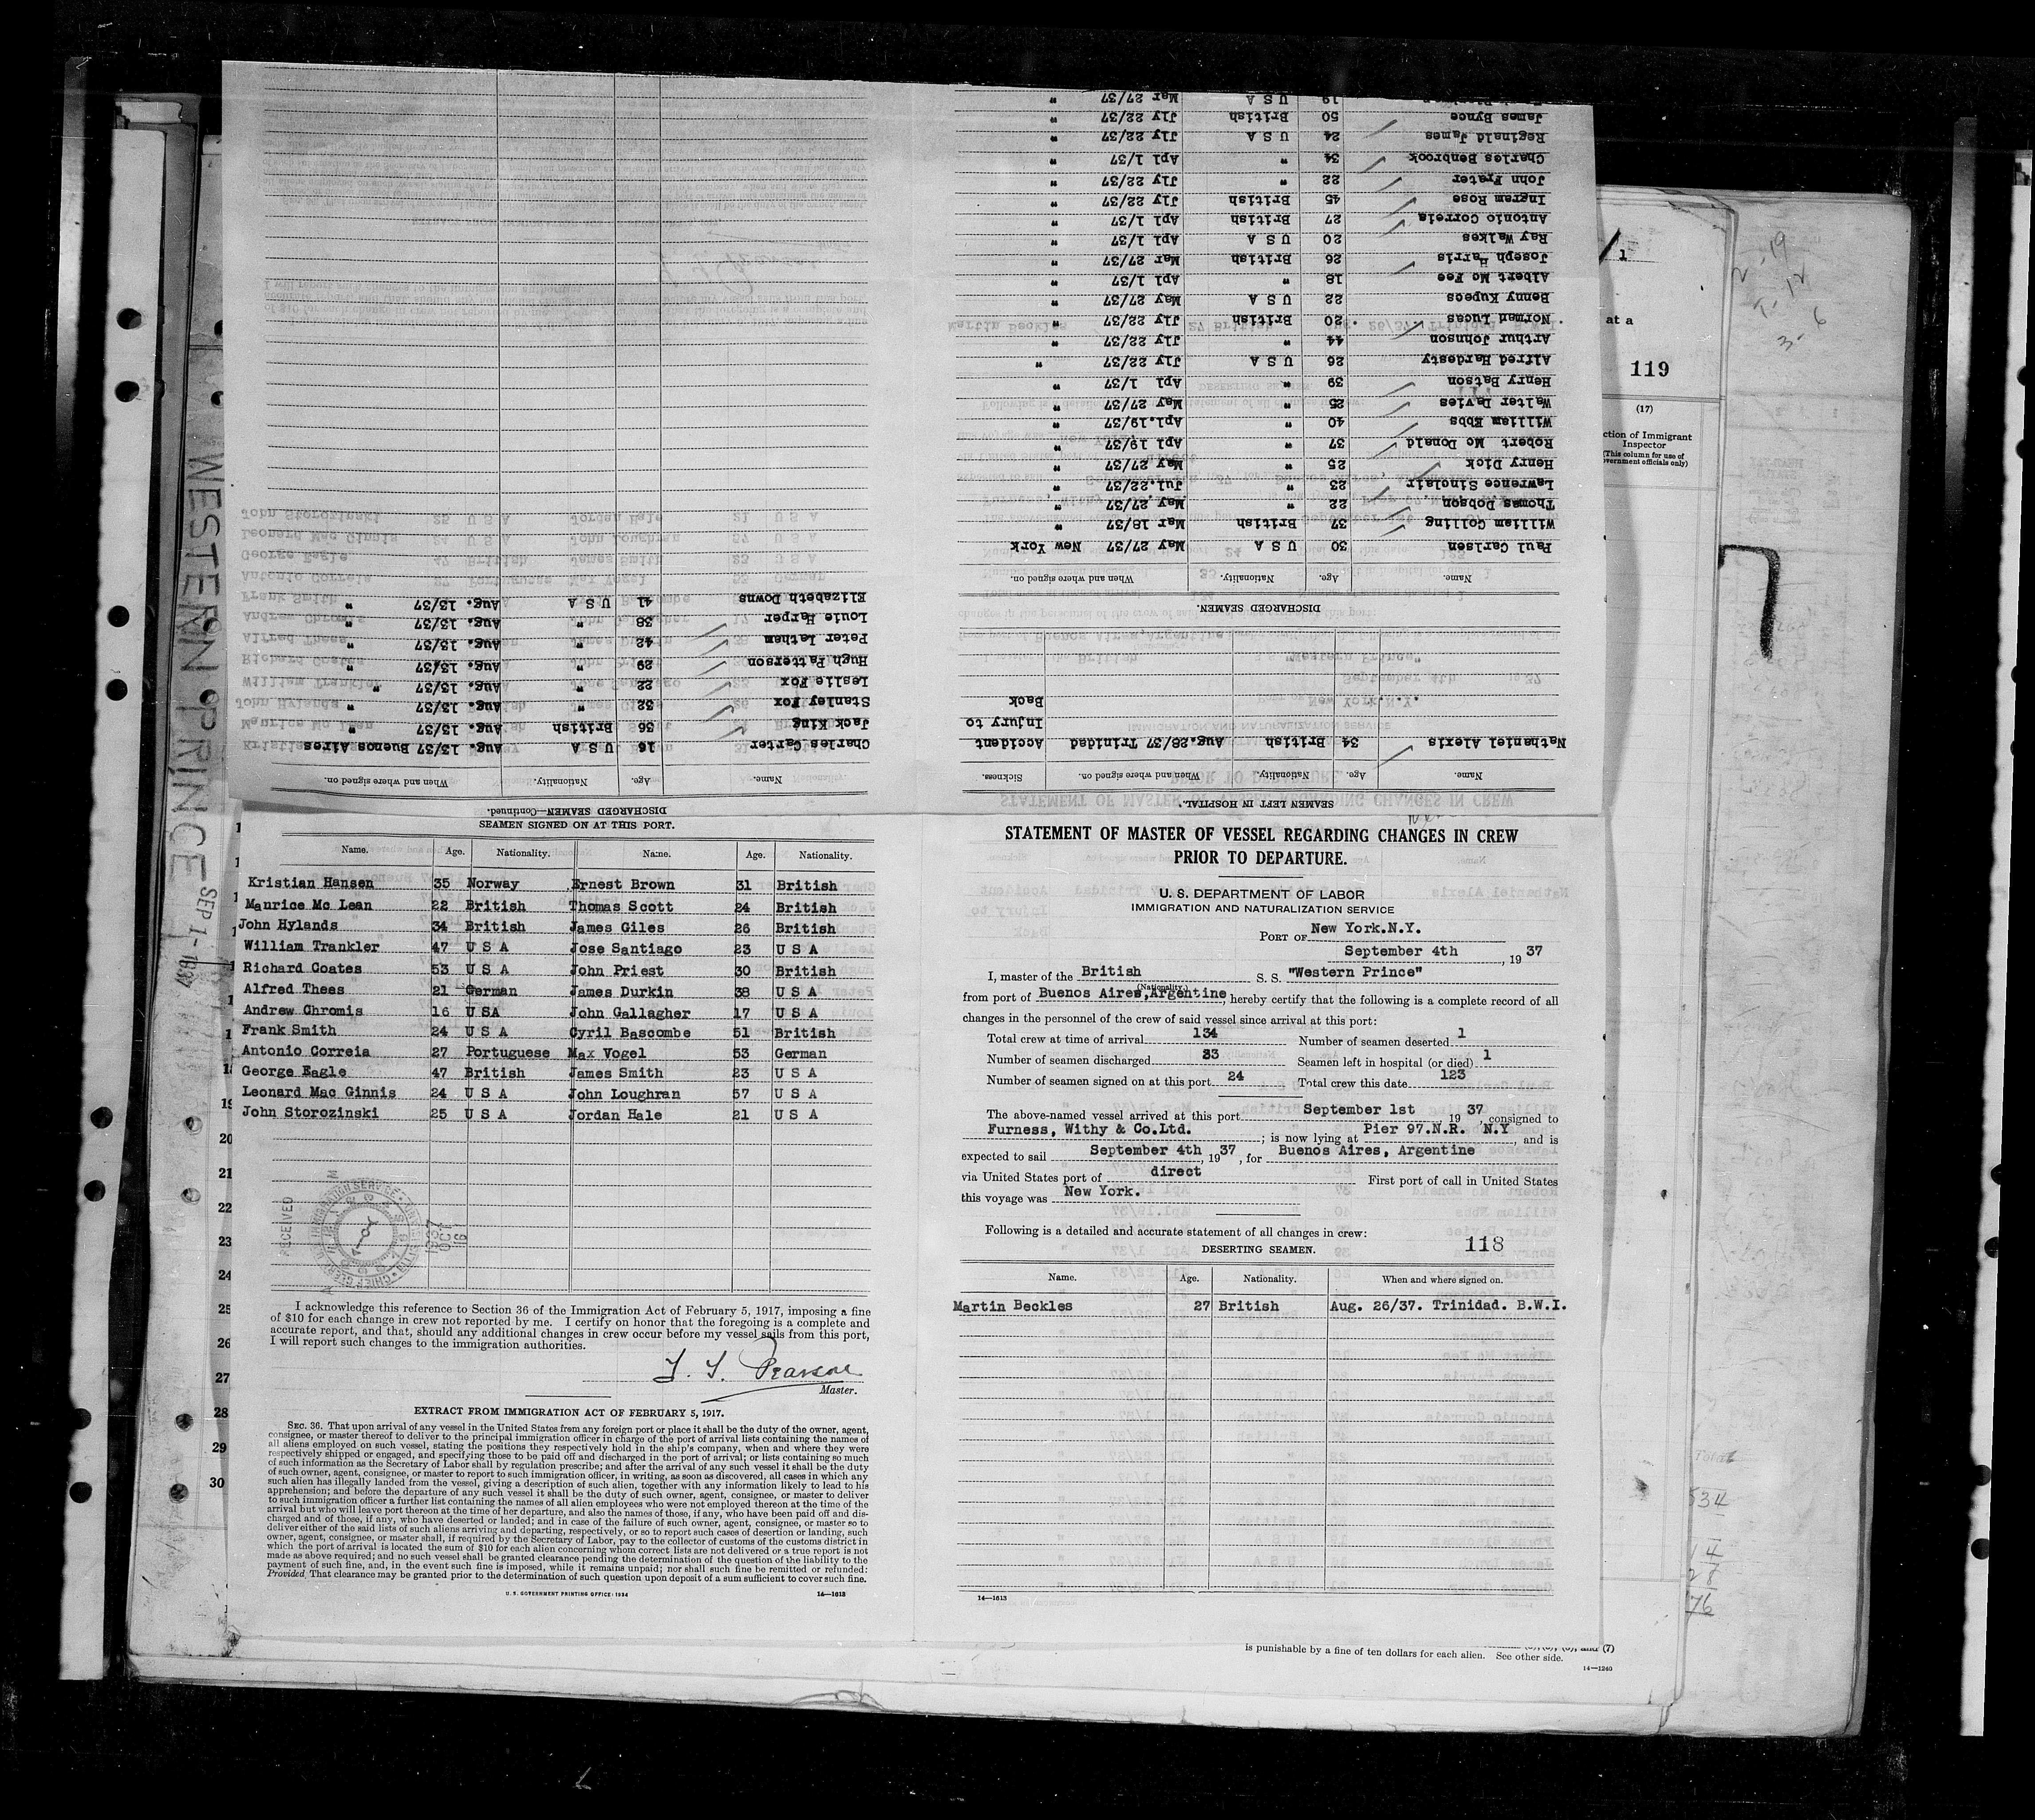 SEAMEN SIGNED ON AT THIS PORT.
Name. Age. Nationality. Name. Age. Nationality.
Kristian Hansen 35 Norway Ernest Brown 31 British
Maurice Mc Lean 22 British Thomas Scott 24 British
John Hylands 34 British James Giles 26 British
William Trankler 47 U S A Jose Santiago 23 U S A
Richard Coates 53 U S A John Priest 30 British
Alfred Thees 21 German James Durkin 38 U S A
Andrew Chromis 16 U SA John Gallagher 17 U S A
Frank Smith 24 U S A Cyril Bascombe 51 British
Antonio Correia 27 Portuguese Max Vogel 53 German
George Eagle 47 British James Smith 23 U S A
Leonard Mac Ginnis 24 U S A John Loughran 57 U S A
John Storozinski 25 U S A Jordan Hale 21 U S A
RECEIVED
1937 OCT 16
I acknowledge this reference to Section 36 of the Immigration Act of February 5, 1917, imposing a fine
of $10 for each change in crew not reported by me. I certify on honor that the foregoing is a complete and
accurate report, and that, should any additional changes in crew occur before my vessel sails from this port,
I will report such changes to the immigration authorities.
Pearson
Master.
EXTRACT FROM IMMIGRATION ACT OF FEBRUARY 5, 1917.
SEC. 36. That upon arrival of any vessel in the United States from any foreign port or place it shall be the duty of the owner, agent,
consignee, or master thereof to deliver to the principal immigration officer in charge of the port of arrival lists containing the names of
all aliens employed on such vessel, stating the positions they respectively hold in the ship's company, when and where they were
respectively shipped or engaged, and specifying those to be paid off and discharged in the port of arrival; or lists containing so much
of such information as the Secretary of Labor shall by regulation prescribe; and after the arrival of any such vessel it shall be the duty
of such owner, agent, consignee, or master to report to such immigration officer, in writing, as soon as discovered, all cases in which any
such alien has illegally landed from the vessel, giving a description of such alien, together with any information likely to lead to his
apprehension; and before the departure of any such vessel it shall be the duty of such owner, agent, consignee, or master to deliver
to such immigration officer a further list containing the names of all alien employees who were not employed thereon at the time of the
arrival but who will leave port thereon at the time of her departure, and also the names of those, if any, who have been paid off and dis-
charged and of those, if any, who have deserted or landed; and in case of the failure of such owner, agent, consignee, or master so to
deliver either of the said lists of such aliens arriving and departing, respectively, or so to report such cases of desertion or landing, such
owner, agent, consignee, or master shall, if required by the Secretary of Labor, pay to the collector of customs of the customs district in
which the port of arrival is located the sum of $10 for each alien concerning whom correct lists are not delivered or a true report is not
made as above required; and no such vessel shall be granted clearance pending the determination of the question of the liability to the
payment of such fine, and, in the event such fine is imposed, while it remains unpaid; nor shall such fine be remitted or refunded:
Provided, That clearance may be granted prior to the determination of such question upon deposit of a sum sufficient to cover such fine.
U. S. GOVERNMENT PRINTING OFFICE: 1934 14—1613
STATEMENT OF MASTER OF VESSEL REGARDING CHANGES IN CREW
PRIOR TO DEPARTURE.
U. S. DEPARTMENT OF LABOR
IMMIGRATION AND NATURALIZATION SERVICE
PORT OF New York.N.Y.
September 4th, 19 37
I, master of the British S. S. "Western Prince"
(Nationality.)
from port of Buenos Aires,Argentine, hereby certify that the following is a complete record of all
changes in the personnel of the crew of said vessel since arrival at this port:
Total crew at time of arrival 134 Number of seamen deserted 1
Number of seamen discharged 33 Seamen left in hospital (or died) 1
Number of seamen signed on at this port 24 Total crew this date 123
The above-named vessel arrived at this port September 1st 19 37, consigned to
Furness, Withy & Co.Ltd.; is now lying at Pier 97.N.R. N.Y, and is
expected to sail September 4th, 19 37, for Buenos Aires, Argentine
via United States port of direct First port of call in United States
this voyage was New York.
Following is a detailed and accurate statement of all changes in crew:
DESERTING SEAMEN. 118
Name. Age. Nationality. When and where signed on.
Martin Beckles 27 British Aug. 26/37. Trinidad. B.W.I.
14—1613
DISCHARGED SEAMEN—Continued.
Name. Age. Nationality. When and where signed on.
Charles Carter 16 U S A Aug. 13/37 Buenos Aires
Jack King 36 British Aug. 13/37 "
Stanley Fox 32 " Aug. 13/37 "
Leslie Fox 22 " Aug. 13/37 "
Hugh Patterson 29 " Aug. 13/37
Peter Latham 42 " Aug. 13/37 "
Louie Harper 38 " Aug. 13/37 "
Elizabeth Downs 41 U S A Aug. 13/37 "
SEAMEN LEFT IN HOSPITAL.
Name. Age. Nationality. When and where signed on. Sickness.
Nathaniel Alexis 34 British Aug.28/37 Trinidad Accident
Injury to
Back
DISCHARGED SEAMEN.
Name. Age. Nationality. When and where signed on.
Paul Carlsen 30 U S A May 27/37 New York
William Golling 37 British Mar 18/37 "
Thomas Dobson 22 " May 27/37 "
Lawrence Sinclair 23 " Jul.22/37 "
Henry Dick 25 " May 27/37 "
Robert Mc Donald 37 " Apl 19/37 "
William Ebbs 40 " Apl.19/37 "
Walter Davies 25 " May 27/37 "
Henry Batson 39 " Apl 1/37 "
Alfred Hardesty 26 U S A Jly 22/37 "
Arthur Johnson 44 " Jly 22/37 "
Norman Lucas 20 British Jly 22/37 "
Benny Kupecs 22 U S A May 27/37 "
Albert Mc Fee 18 " Apl 1/37 "
Joseph Harris 26 British Mar 27/37 "
Ray Walkes 20 U S A Apl 1/37 "
Antonio Correia 27 British Apl 1/37 "
Ingram Rose 45 British Jly 22/37 "
John Prater 22 " Jly 22/37 "
Charles Benbrook 34 " Apl 1/37 "
Reginald James 24 U S A Jly 22/37 "
James Bynoe 50 British Jly 22/37 "
19 U S A Mar 27/37 "
WESTERN PRINCE SEP 1- 1937
1
at a
119
(17)
ction of Immigrant
Inspector
(This column for use of
overnment officials only)
19
20
21
22
23
24
25
26
27
28
29
30
is punishable by a fine of ten dollars for each alien. See other side.
14—1240
Total
534
14
28
76